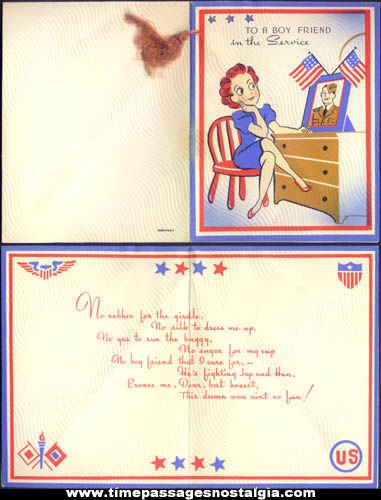 TO A BOY FRIEND
in the Service
MADE IN U.S.A.
No rubber for the girdle,
No silk to dress me up,
No gas to run the buggy,
No sugar for my cup
No boy friend that I care for, —
He's fighting Jap and Hun,
Excuse me, Dear, but honest,
This damn war aint no fun!
US
www.timepassagesnostalgia.com